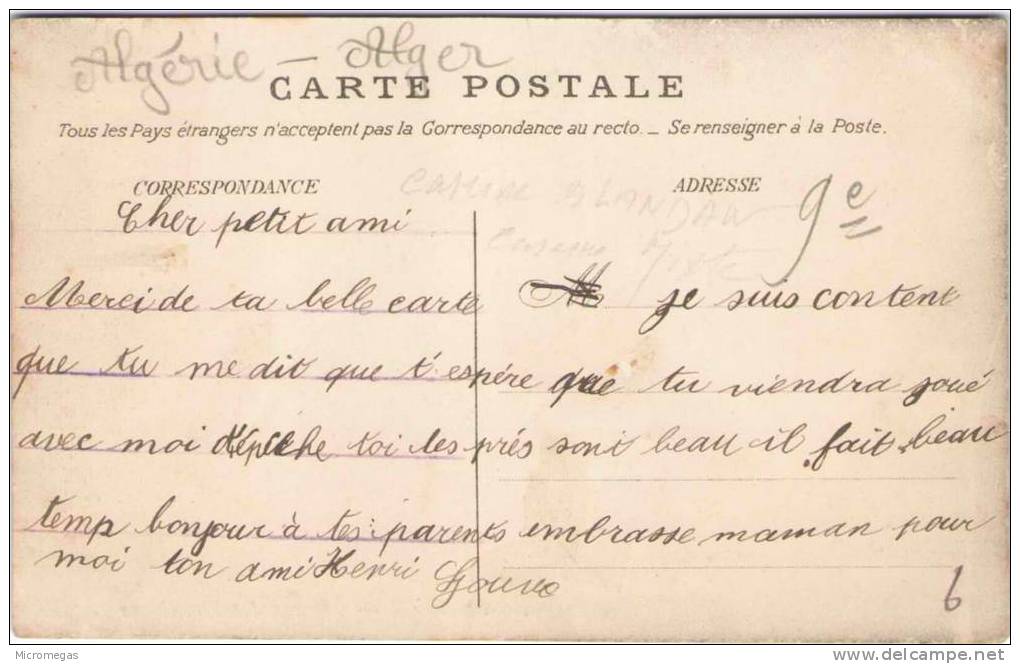 Algérie - Alger
CARTE POSTALE
Tous les Pays étrangers n'acceptent pas la Correspondance au recto. _ Se renseigner à la Poste.
CORRESPONDANCE
ADRESSE
9e
Caserne BLANDAN
Caserne
Cher petit ami
Merci de ta belle carte je suis content
que tu me dit que t'espére que tu viendra joué
avec moi dépêche toi les prés sont beau il fait beau
temp bonjour à tes parents embrasse maman pour
moi ton ami Henri
6
Micromegas
www.delcampe.net